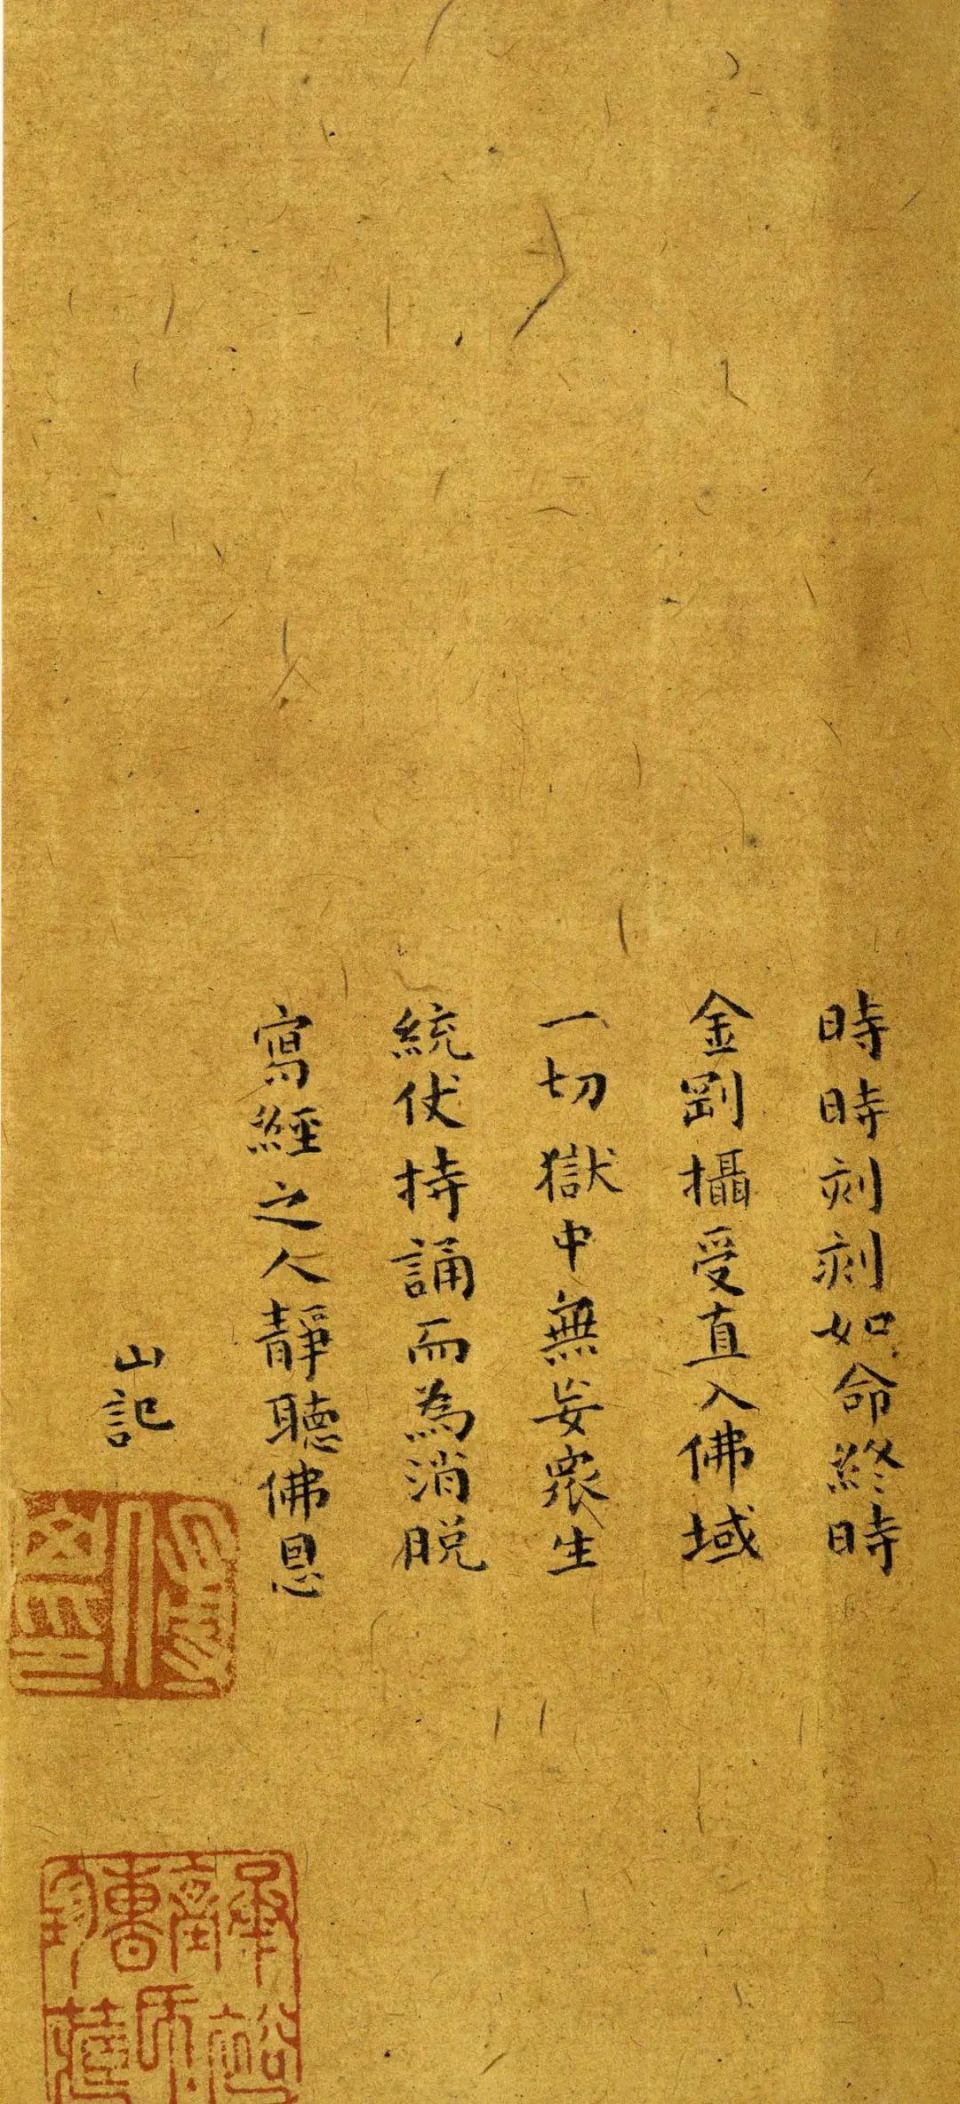 時時刻刻如命終時
金剛攝受直入佛域
一切獄中無妄眾生
統伏持誦而為消脫
寫經之人靜聽佛恩
山記